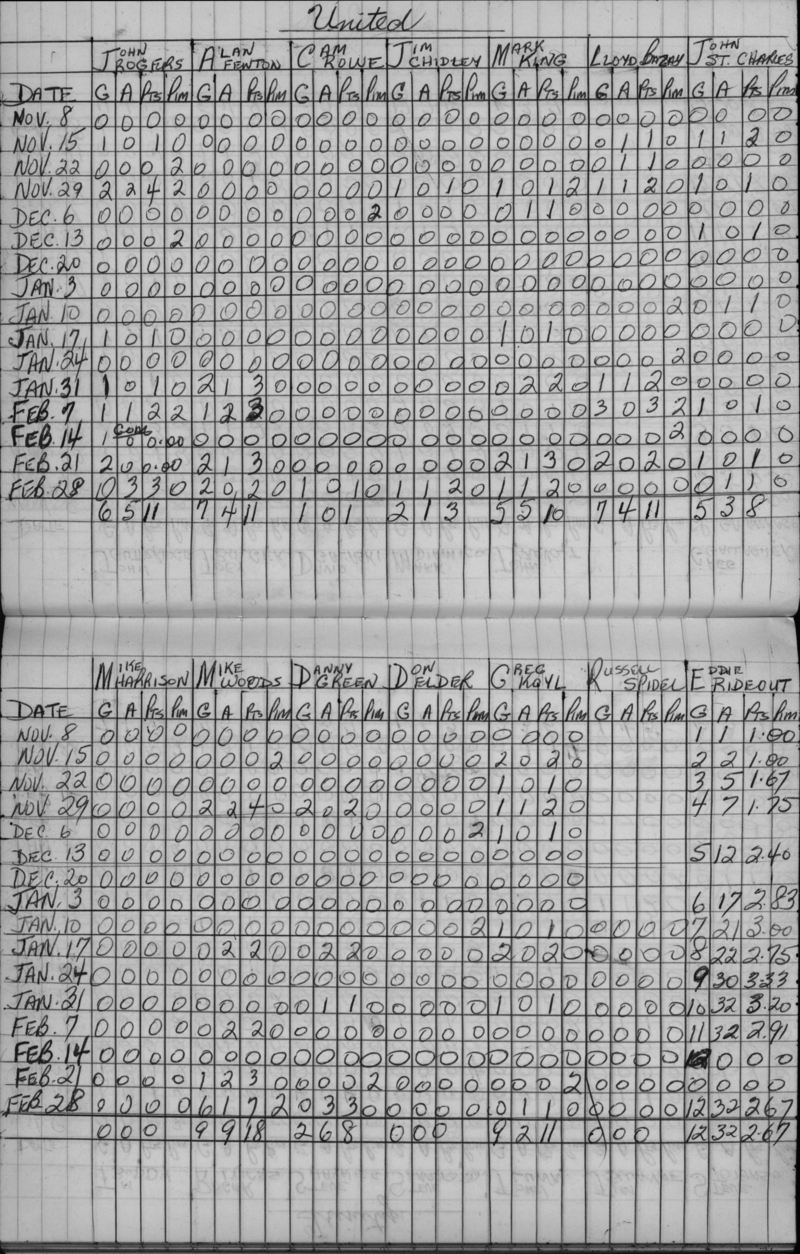 United
JOHN ROGERS ALAN FENTON CAM ROWE JIM CHIDLEY MARK KING LLOYD JOHN ST. CHARLES
DATE G A Pts Pim G A Pts Pim G A Pts Pim G A Pts Pim G A Pts Pim G A Pts Pim G A Pts Pim
NOV. 8 0 0 0 0 0 0 0 0 0 0 0 0 0 0 0 0 0 0 0 0 0 0 0 0 0 0 0 0
NOV. 15 1 0 1 0 0 0 0 0 0 0 0 0 0 0 0 0 0 0 0 0 0 1 1 0 1 1 2 0
NOV. 22 0 0 0 2 0 0 0 0 0 0 0 0 0 0 0 0 0 0 0 0 0 1 1 0 0 0 0 0
NOV. 29 2 2 4 2 0 0 0 0 0 0 0 0 1 0 1 0 1 0 1 2 1 1 2 0 1 0 1 0
DEC. 6 0 0 0 0 0 0 0 0 0 0 0 2 0 0 0 0 0 1 1 0 0 0 0 0 0 0 0 0
DEC. 13 0 0 0 2 0 0 0 0 0 0 0 0 0 0 0 0 0 0 0 0 0 0 0 0 1 0 1 0
DEC. 20 0 0 0 0 0 0 0 0 0 0 0 0 0 0 0 0 0 0 0 0 0 0 0 0 0 0 0 0
JAN. 3 0 0 0 0 0 0 0 0 0 0 0 0 0 0 0 0 0 0 0 0 0 0 0 0 0 0 0 0
JAN. 10 0 0 0 0 0 0 0 0 0 0 0 0 0 0 0 0 0 0 0 0 0 0 0 2 0 1 1 0
JAN. 17 1 0 1 0 0 0 0 0 0 0 0 0 0 0 0 0 1 0 1 0 0 0 0 0 0 0 0 0
JAN. 24 0 0 0 0 0 0 0 0 0 0 0 0 0 0 0 0 0 0 0 0 0 0 0 2 0 0 0 0
JAN. 31 1 0 1 0 2 1 3 0 0 0 0 0 0 0 0 0 0 2 2 0 1 1 2 0 0 0 0 0
FEB. 7 1 1 2 2 1 2 3 0 0 0 0 0 0 0 0 0 0 0 0 0 3 0 3 2 1 0 1 0
FEB. 14 1 GOAL 0 0.00 0 0 0 0 0 0 0 0 0 0 0 0 0 0 0 0 0 0 0 2 0 0 0 0
FEB. 21 2 0 0.00 2 1 3 0 0 0 0 0 0 0 0 0 2 1 3 0 2 0 2 0 1 0 1 0
FEB. 28 0 3 3 0 2 0 2 0 1 0 1 0 1 1 2 0 1 1 2 0 0 0 0 0 0 1 1 0
6 5 11 7 4 11 1 0 1 2 1 3 5 5 10 7 4 11 5 3 8
MIKE HARRISON MIKE WOODS DANNY GREEN DON ELDER GREG KOYL RUSSELL SPIDEL EDDIE RIDEOUT
DATE G A Pts Pim G A Pts Pim G A Pts Pim G A Pts Pim G A Pts Pim G A Pts Pim G A Pts Pim
NOV. 8 0 0 0 0 0 0 0 0 0 0 0 0 0 0 0 0 0 0 0 0 1 1 1.00
NOV. 15 0 0 0 0 0 0 0 2 0 0 0 0 0 0 0 0 2 0 2 0 2 2 1.00
NOV. 22 0 0 0 0 0 0 0 0 0 0 0 0 0 0 0 0 1 0 1 0 3 5 1.67
NOV 29 0 0 0 0 2 2 4 0 2 0 2 0 0 0 0 0 1 1 2 0 4 7 1.75
DEC 6 0 0 0 0 0 0 0 0 0 0 0 0 0 0 0 2 1 0 1 0
DEC. 13 0 0 0 0 0 0 0 0 0 0 0 0 0 0 0 0 0 0 0 0 5 12 2.40
DEC. 20 0 0 0 0 0 0 0 0 0 0 0 0 0 0 0 0 0 0 0 0
JAN. 3 0 0 0 0 0 0 0 0 0 0 0 0 0 0 0 0 0 0 0 0 6 17 2.83
JAN. 10 0 0 0 0 0 0 0 0 0 0 0 0 0 0 0 2 1 0 1 0 0 0 0 0 7 21 3.00
JAN. 17 0 0 0 0 0 2 2 0 0 2 2 0 0 0 0 0 2 0 2 0 0 0 0 0 8 22 2.75
JAN. 24 0 0 0 0 0 0 0 0 0 0 0 0 0 0 0 0 0 0 0 0 0 0 0 0 9 30 3.33
JAN. 31 0 0 0 0 0 0 0 0 0 1 1 0 0 0 0 0 1 0 1 0 0 0 0 0 10 32 3.20
FEB. 7 0 0 0 0 0 2 2 0 0 0 0 0 0 0 0 0 0 0 0 0 0 0 0 0 11 32 2.91
FEB. 14 0 0 0 0 0 0 0 0 0 0 0 0 0 0 0 0 0 0 0 0 0 0 0 0 0 0 0
FEB. 21 0 0 0 0 1 2 3 0 0 0 0 2 0 0 0 0 0 0 0 2 0 0 0 0 0 0 0 0
FEB. 28 0 0 0 0 6 1 7 2 0 3 3 0 0 0 0 0 0 1 1 0 0 0 0 0 12 32 2.67
0 0 0 9 9 18 2 6 8 0 0 0 9 2 11 0 0 0 12 32 2.67